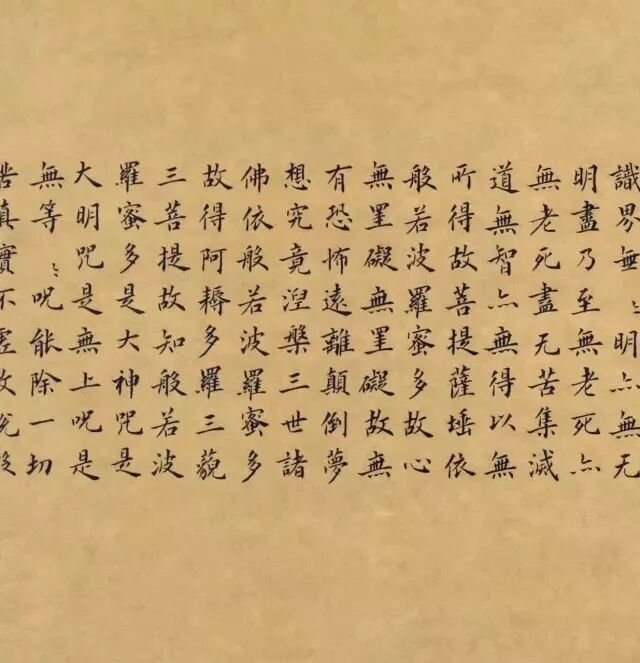 識界無〻明亦無无
明盡乃至無老死亦
無老死盡无苦集滅
道無智亦無得以無
所得故菩提薩埵依
般若波羅蜜多故心
無罣礙無罣礙故無
有恐怖遠離顛倒夢
想究竟涅槃三世諸
佛依般若波羅蜜多
故得阿耨多羅三藐
三菩提故知般若波
羅蜜多是大神咒是
大明咒是無上呪是
無等〻呪能除一切
苦真實不虛故說般